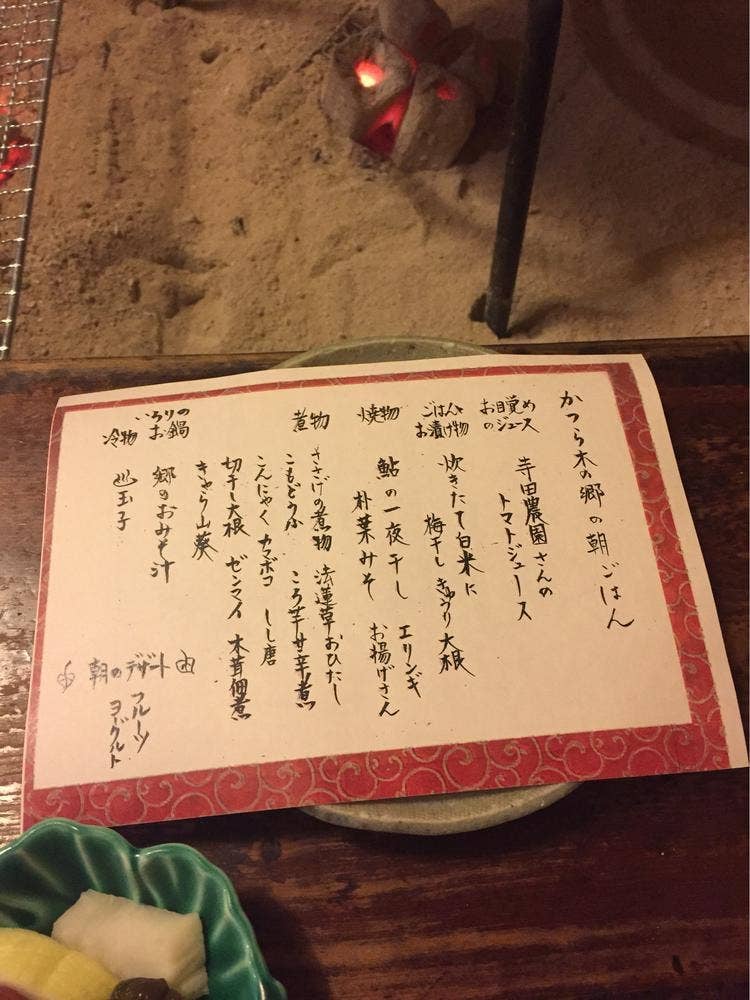 かつら木の郷の朝ごはん
お目覚め
のジュース
寺田農園さんの
トマトジュース
ごはんと
お漬け物
炊きたて白米に
梅干し きゅうり 大根
焼物
鮎の一夜干し エリンギ
朴葉みそ お揚げさん
煮物
ささげの煮物 法蓮草おひたし
こもどうふ ころ芋甘辛煮
こんにゃく カマボコ しし唐
切干し大根 ゼンマイ 木茸佃煮
きゃら山葵
いろりの
お鍋
郷のおみそ汁
冷物
玉子
朝のデザート
フルーツ
ヨーグルト